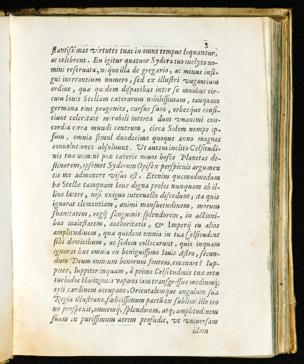 3
stantissimas virtutes tuas in omne tempus loquantur,
ac celebrent. En igitur quatuor Sydera tuo inclyto no-
mini reseruata, neque illa de gregario, ac minus insi-
gni inerrantium numero, sed ex illustri vagantium
ordine, quæ quidem disparibus inter se motibus cir-
cum Iouis Stellam cæterarum nobilissimam, tanquam
germana eius progenies, cursus suos, orbesque confi-
ciunt celeritate mirabili interea dum vnanimi con-
cordia circa mundi centrum, circa Solem nempè ip-
sum, omnia simul duodecimo quoque anno magnas
conuolutiones absoluunt. Vt autem inclito Celsitudi-
nis tuæ nomini præ cæteris nouos hosce Planetas de-
stinarem, ipsemet Syderum Opifex perspicuis argumen-
tis me admonere visus est. Etenim quemadmodum
hæ Stellæ tamquam Ioue digna proles nunquam ab il-
lius latere, nisi exiguo interuallo discedunt, ita quis
ignorat clementiam, animi mansuetudinem, morum
suauitatem, regij sanguinis splendorem, in actioni-
bus maiestatem, authoritatis, & Imperij in alios
amplitudinem, quæ quidem omnia in tua Celsitudine
sibi domicilium, ac sedem collocarunt, quis inquam
ignorat hæc omnia ex benignissimo Iouis Astro, secun-
dum Deum omnium bonorum fontem, emanare? Iup-
piter, Iuppiter inquam, à primo Celsitudinis tuæ ortu
turbidos Horizontis vapores iam transgressus mediumque
cæli cardinem occupans, Orientalemque angulum sua
Regia illustrans, fœlicissimum partum ex sublimi illo tro-
no prospexit, omnemque splendorem, atque amplitudinem
suam in purissimum aerem profudit, vt vniuersam
illam